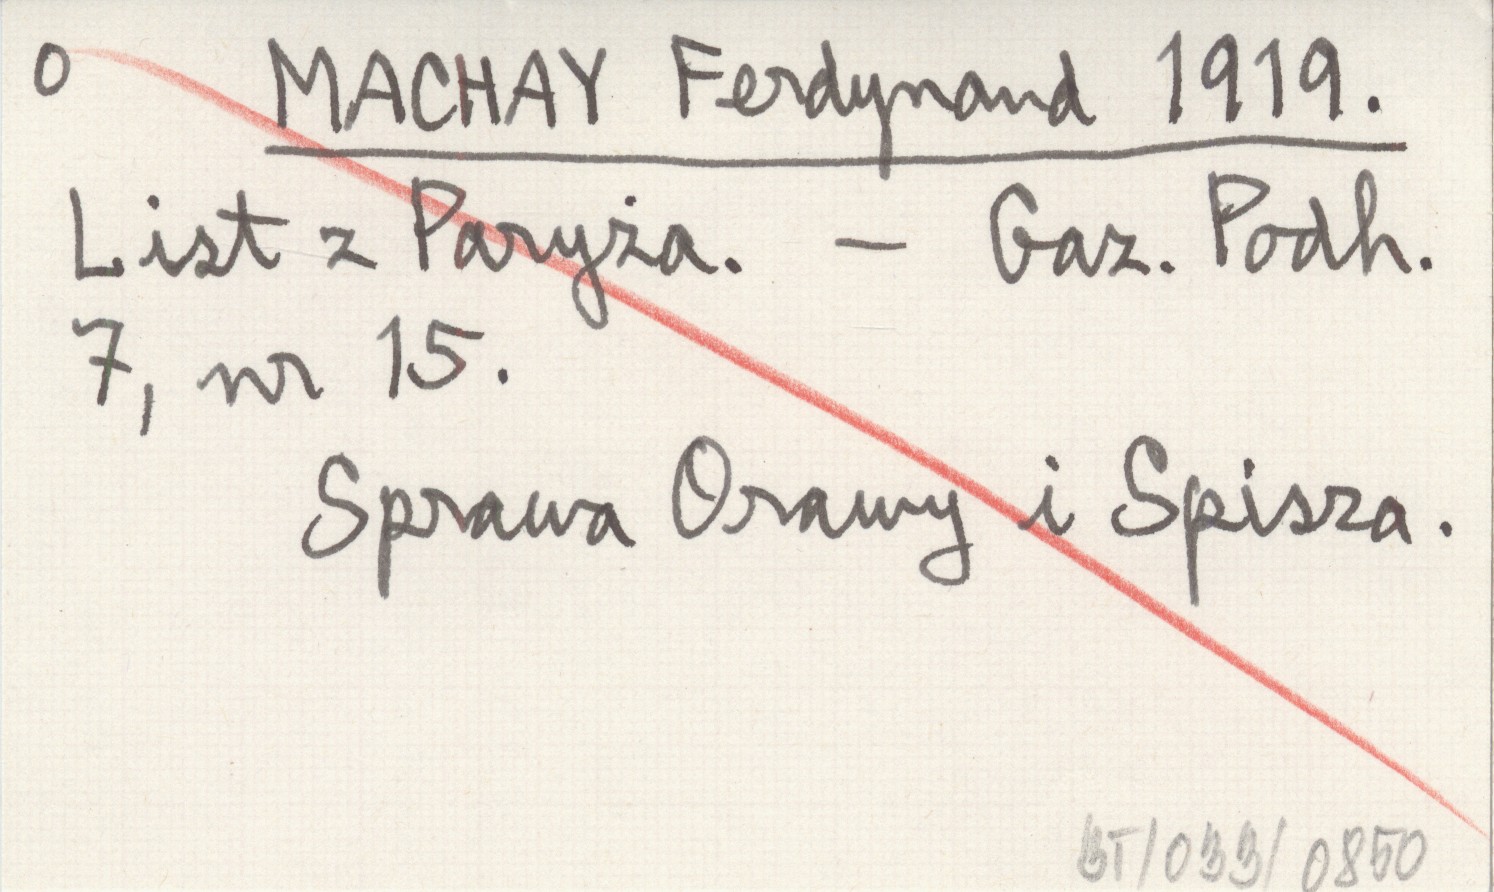 0 MACHAY Ferdynand 1919.
List z Paryża. — Gaz. Podh.
7, nr 15.
Sprawa Orawy i Spisza.
BT/033/0850